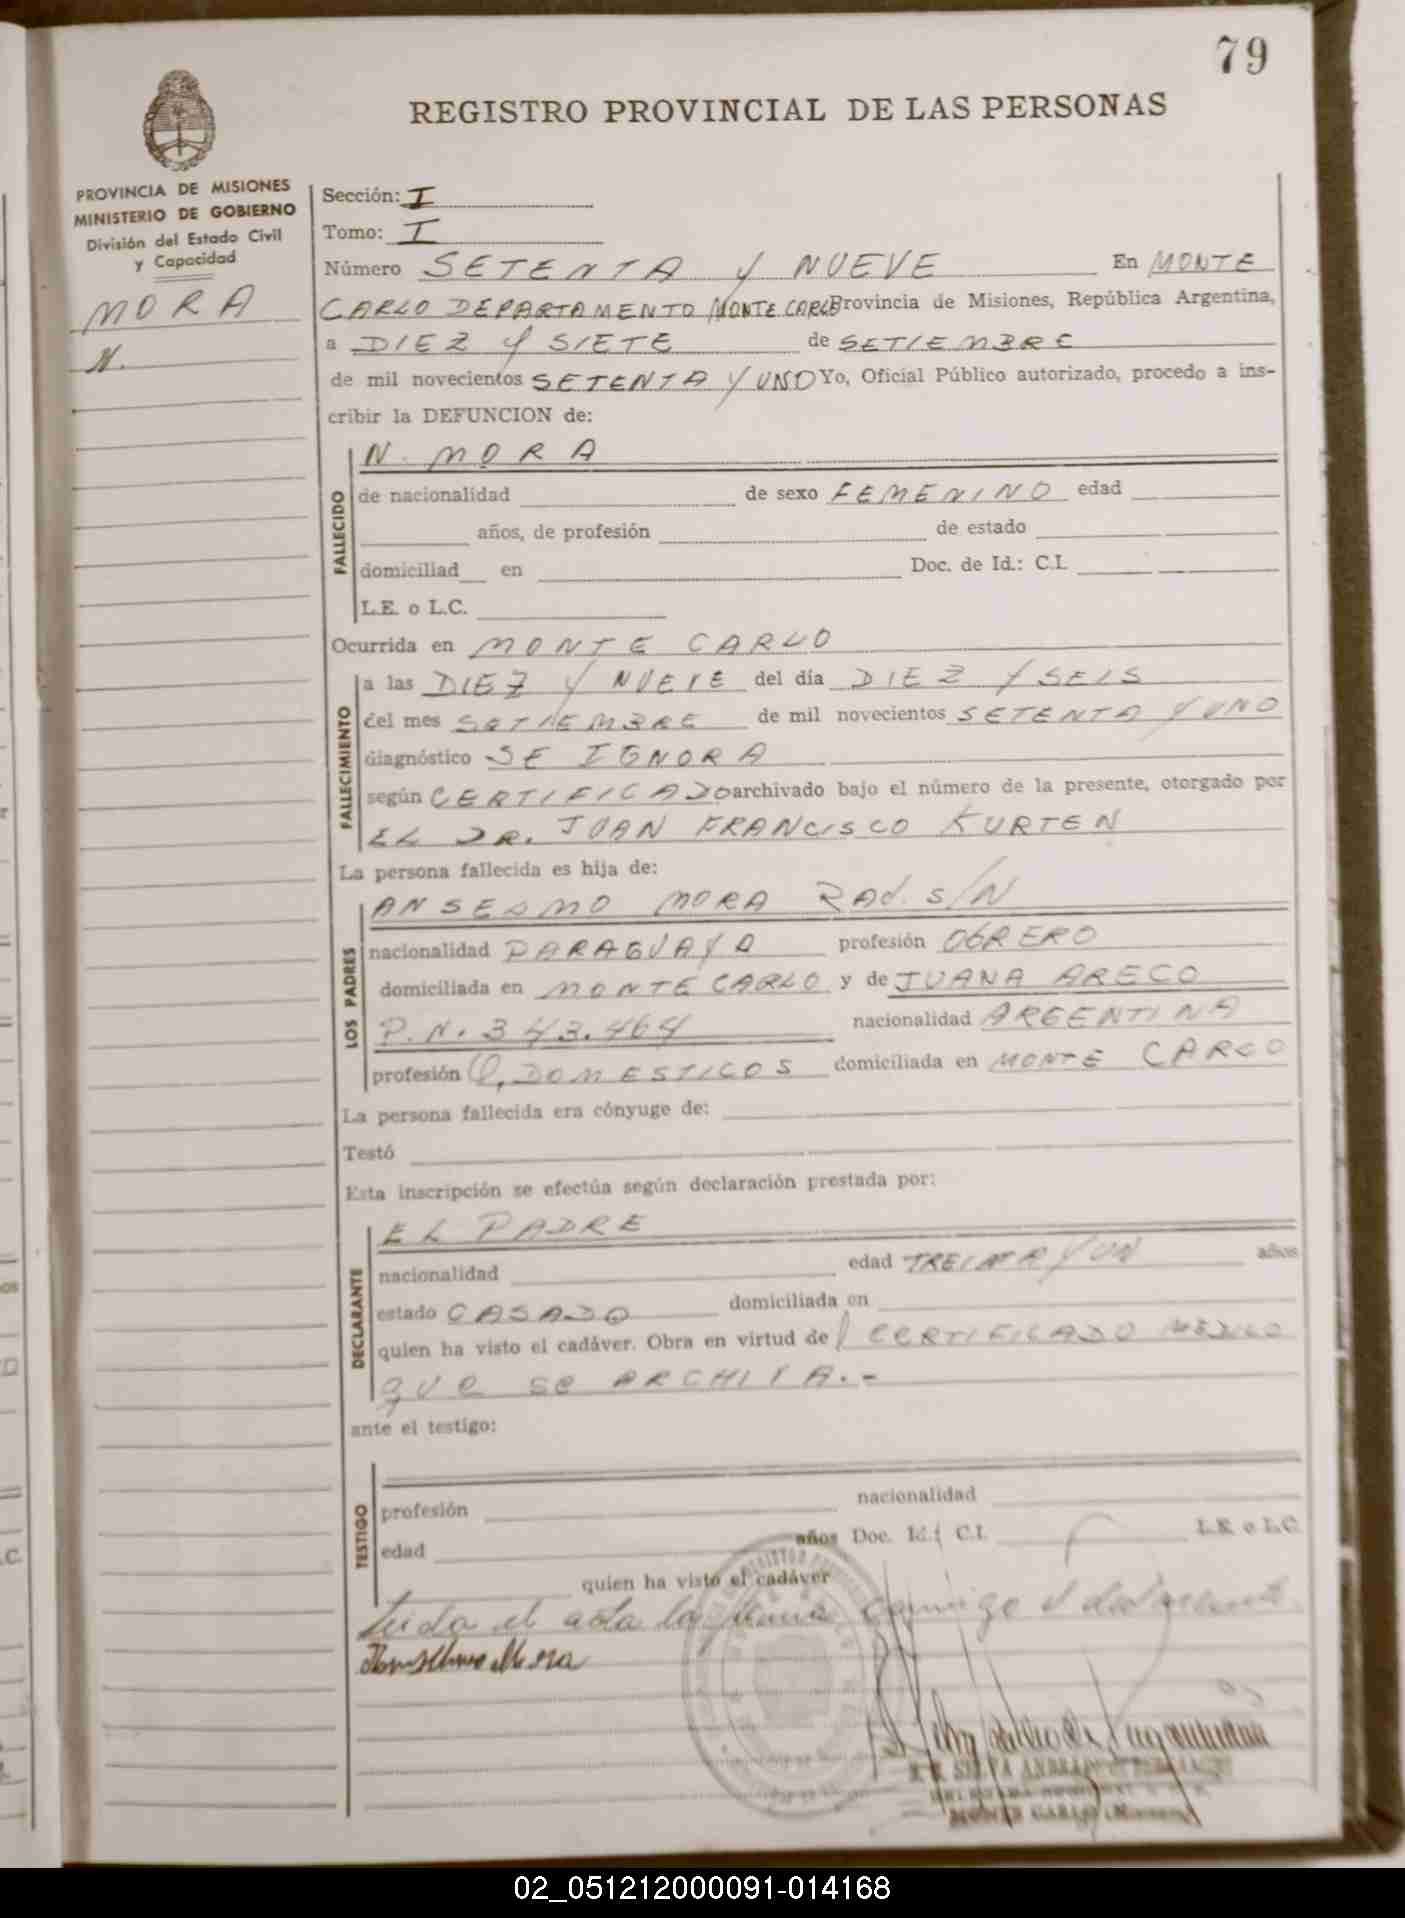 79
REGISTRO PROVINCIAL DE LAS PERSONAS
PROVINCIA DE MISIONES
MINISTERIO DE GOBIERNO
División del Estado Civil
y Capacidad
MORA
N.
Sección: I
Tomo: I
Número SETENTA Y NUEVE En MONTE
CARLO DEPARTAMENTO MONTE CARLO Provincia de Misiones, República Argentina,
a DIEZ Y SIETE de SETIEMBRE
de mil novecientos SETENTA Y UNO Yo, Oficial Público autorizado, procedo a ins-
cribir la DEFUNCION de:
FALLECIDO
N. MORA
de nacionalidad de sexo FEMENINO edad
años, de profesión de estado
domiciliad en Doc. de Id.: C.I.
L.E. o L.C.
Ocurrida en MONTE CARLO
FALLECIMIENTO
a las DIEZ Y NUEVE del día DIEZ Y SEIS
del mes SETIEMBRE de mil novecientos SETENTA Y UNO
diagnóstico SE IGNORA
según CERTIFICADO archivado bajo el número de la presente, otorgado por
EL DR. JUAN FRANCISCO KURTEN
La persona fallecida es hija de:
LOS PADRES
ANSELMO MORA RAD. S/N
nacionalidad PARAGUAYA profesión OBRERO
domiciliada en MONTE CARLO y de JUANA ARECO
P.N. 343.464 nacionalidad ARGENTINA
profesión Q. DOMESTICOS domiciliada en MONTE CARLO
La persona fallecida era cónyuge de:
Testó
Esta inscripción se efectúa según declaración prestada por:
DECLARANTE
EL PADRE
nacionalidad edad TREINTA Y UN años
estado CASADO domiciliada en
quien ha visto el cadáver. Obra en virtud de CERTIFICADO MEDICO
que se ARCHIVA.-
ante el testigo:
TESTIGO
profesión nacionalidad
edad años Doc. Id.: C.I. L.E. o L.C.
quien ha visto el cadáver
Leida el acta la firma conmigo el declarante
Mora
SILVA
MONTE CARLO (Misiones)
02_051212000091-014168